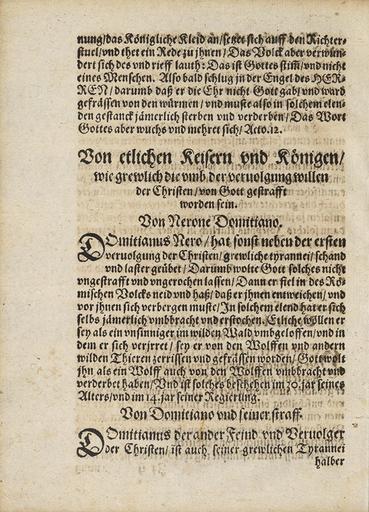 nung/das Königliche Kleid an/setzet sich auff den Richter-
stuel/vnd thet ein Rede zu jhnen/Das Volck aber verwun-
dert sich des vnd rieff lauth: Das ist Gottes stim̃/vnd nicht
eines Menschen. Also bald schlug in der Engel des HER-
REN/darumb daß er die Ehr nicht Gott gab/vnd ward
gefrässen von den würmen/vnd muste also in solchem elen-
den gestanck jämerlich sterben vnd verderben/Das Wort
Gottes aber wuchs vnd mehret sich/Acto.12.
Von etlichen Keisern vnd Königen/
wie grewlich die vmb der veruolgung willen
der Christen/von Gott gestrafft
worden sein.
Von Nerone Domitiano.
DOmitianus Nero/hat sonst neben der ersten
veruolgung der Christen/grewliche tyrannei/schand
vnd laster geübet/Darumb wolte Gott solches nicht
vngestrafft vnd vngerochen lassen/Dann er fiel in des Rö-
mischen Volcks neid vnd haß/daß er jhnen entweichen/vnd
vor jhnen sich verbergen muste/In solchem elend hat er sich
selbs jämerlich vmbbracht vnd erstochen. Etliche wöllen er
sey als ein vnsinniger im wilden Wald vmbgeloffen/vnd in
dem er sich verjrret/sey er von den Wolffen vnd andern
wilden Thieren zerrissen vnd gefrässen worden/Gott wolt
jhn als ein Wolff auch von den Wolffen vmbbracht vnd
verderbet haben/Vnd ist solches beschehen im 30.jar seines
Alters/vnd im 14.jar seiner Regierung.
Von Domitiano vnd seiner straff.
DOmitianus der ander Feind vnd Veruolger
der Christen/ist auch seiner grewlichen Tyrannei
halber